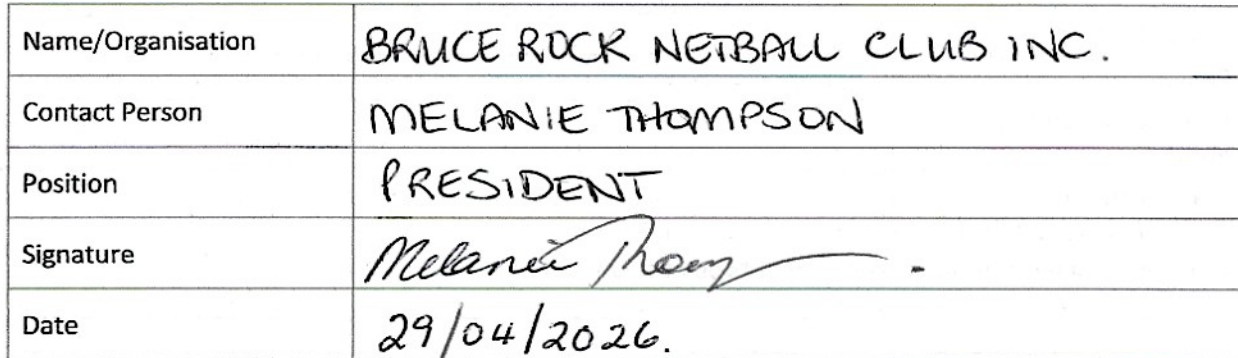 Name/Organisation BRUCE ROCK NETBALL CLUB INC.
Contact Person MELANIE THOMPSON
Position PRESIDENT
Signature Melanie
Date 29/04/2026.